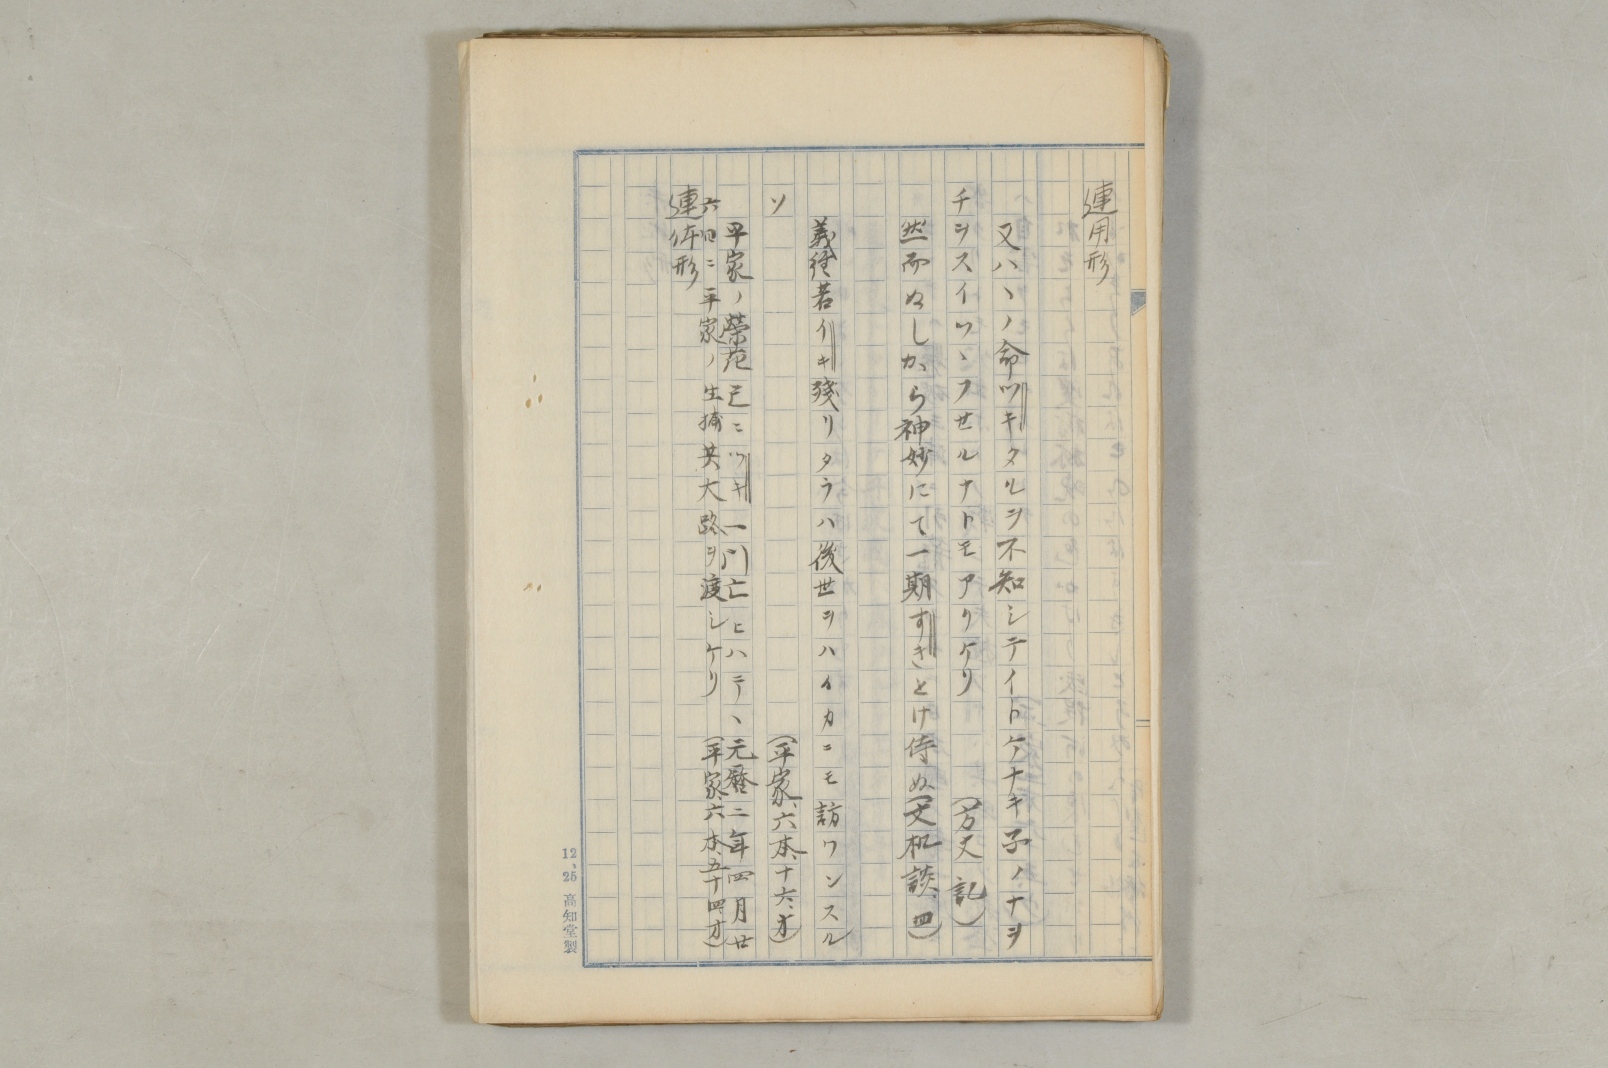 連用形
又ハヽノ命ツキタルヲ不知シテイトケナキ子ノナヲ
チヲスイツヽフセルナトモアリケリ（方丈記）
然而ぬしから神妙にて一期すきとけ侍ぬ（文机談、四）
義経若イキ殘リタラハ後世ヲハイカニモ訪ワンスル
ソ（平家、六本、十六、オ）
平家ノ榮花已ニツキ一門亡ヒハテヽ元暦二年四月廿
六日ニ平家ノ生捕共大路ヲ渡シケリ（平家、六本、五十四、オ）
連体形
12、25 高知堂製